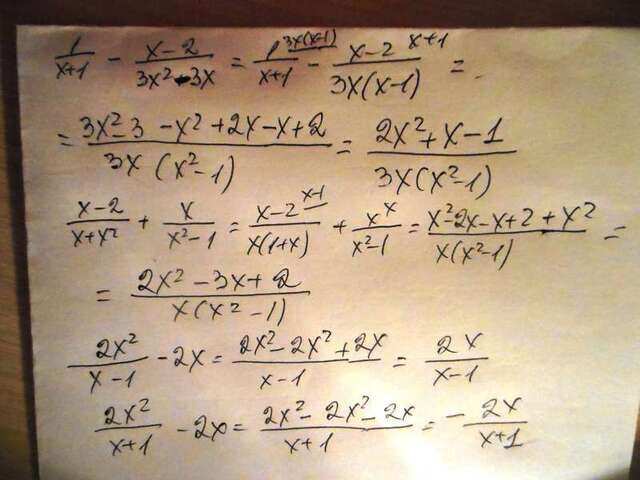 1/(x+1) - (x-2)/(3x²-3x) = 1^(3x(x-1))/(x+1) - (x-2)^(x+1)/(3x(x-1)) =
= (3x²-3-x²+2x-x+2)/(3x(x²-1)) = (2x²+x-1)/(3x(x²-1))
(x-2)/(x+x²) + x/(x²-1) = (x-2)^(x-1)/(x(1+x)) + x^x/(x²-1) = (x²-2x-x+2+x²)/(x(x²-1)) =
= (2x²-3x+2)/(x(x²-1))
2x²/(x-1) - 2x = (2x²-2x²+2x)/(x-1) = 2x/(x-1)
2x²/(x+1) - 2x = (2x²-2x²-2x)/(x+1) = - 2x/(x+1)